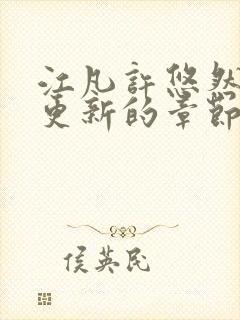 江凡許悠然
更新的章節
侯英民